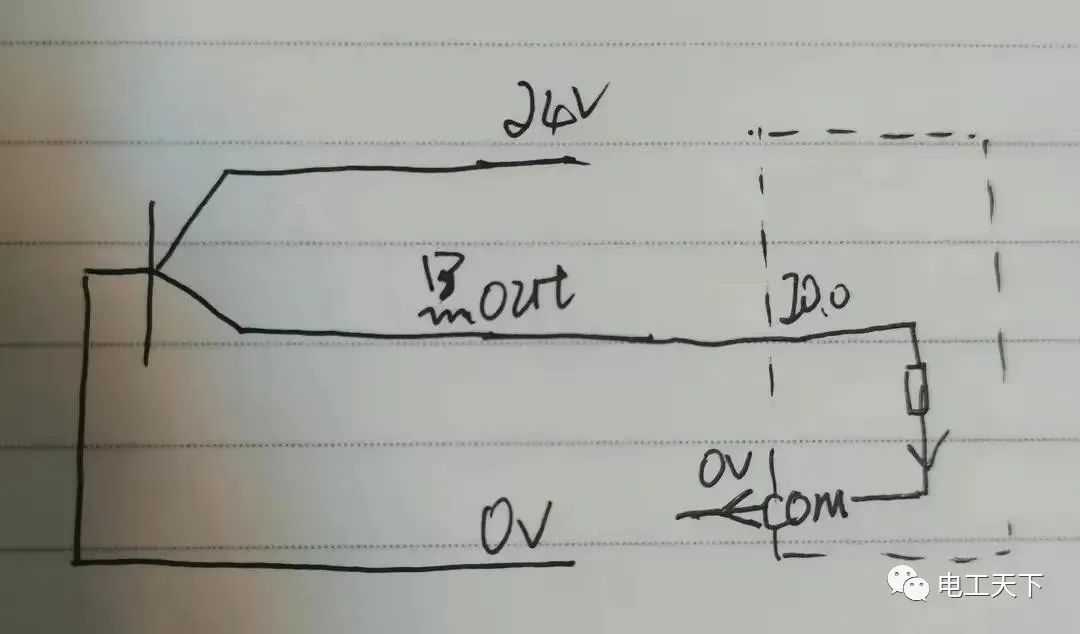 24V
out
I0.0
0V
COM
0V
电工天下